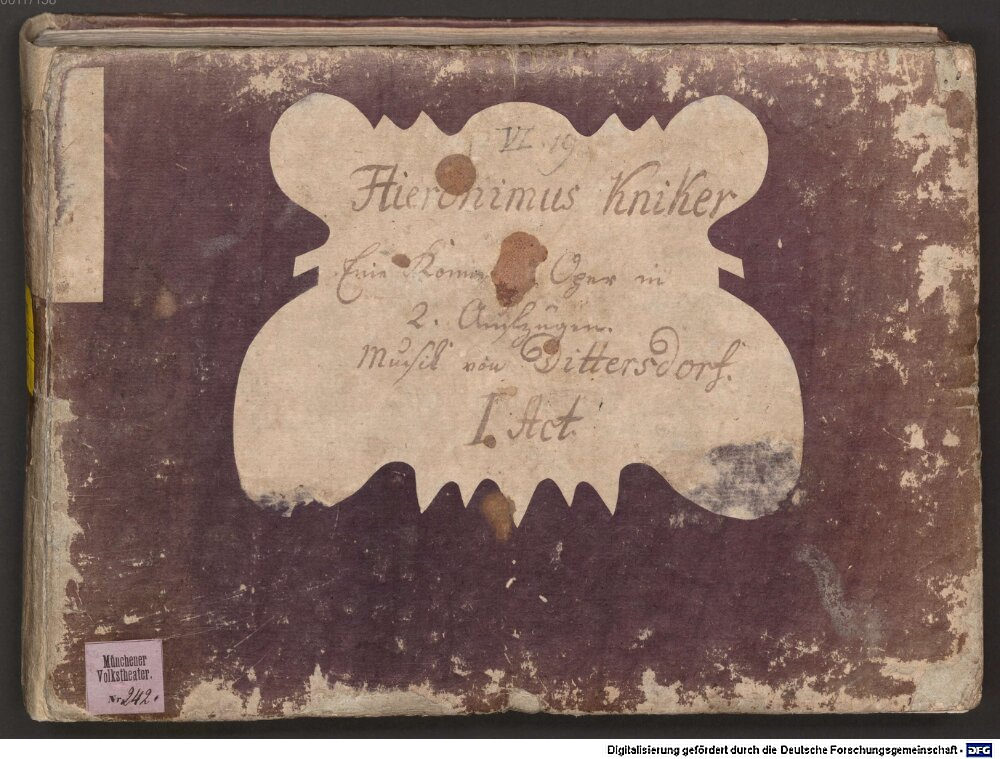 VI. 19
Hieronimus Kniker
Eine Komi Oper in
2. Aufzügen.
Musik von Dittersdorf.
I. Act.
Münchener
Volkstheater.
Nr. 242.
Digitalisierung gefördert durch die Deutsche Forschungsgemeinschaft - DFG